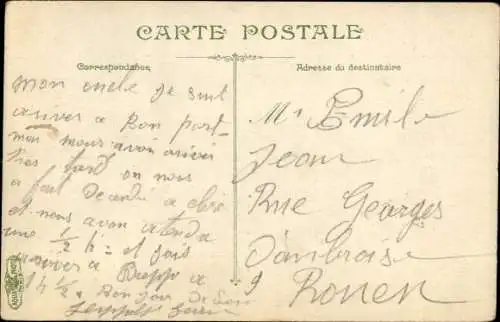 CARTE POSTALE
Correspondance
Adresse du destinataire
mon oncle je suis
ariver a Bon port
mon nous avon arivé
tres tard on nous
a fait
et nous avon atendu
une 1/2 h. et suis
ariver a Dieppe a
1 h 1/2. Bon jour
Mr Emile
Jean
Rue Georges
Dambroise
9
Rouen